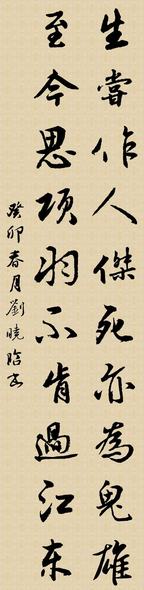 生嘗作人傑死亦為鬼雄
至今思項羽不肯過江东
癸卯春月劉曉晗书